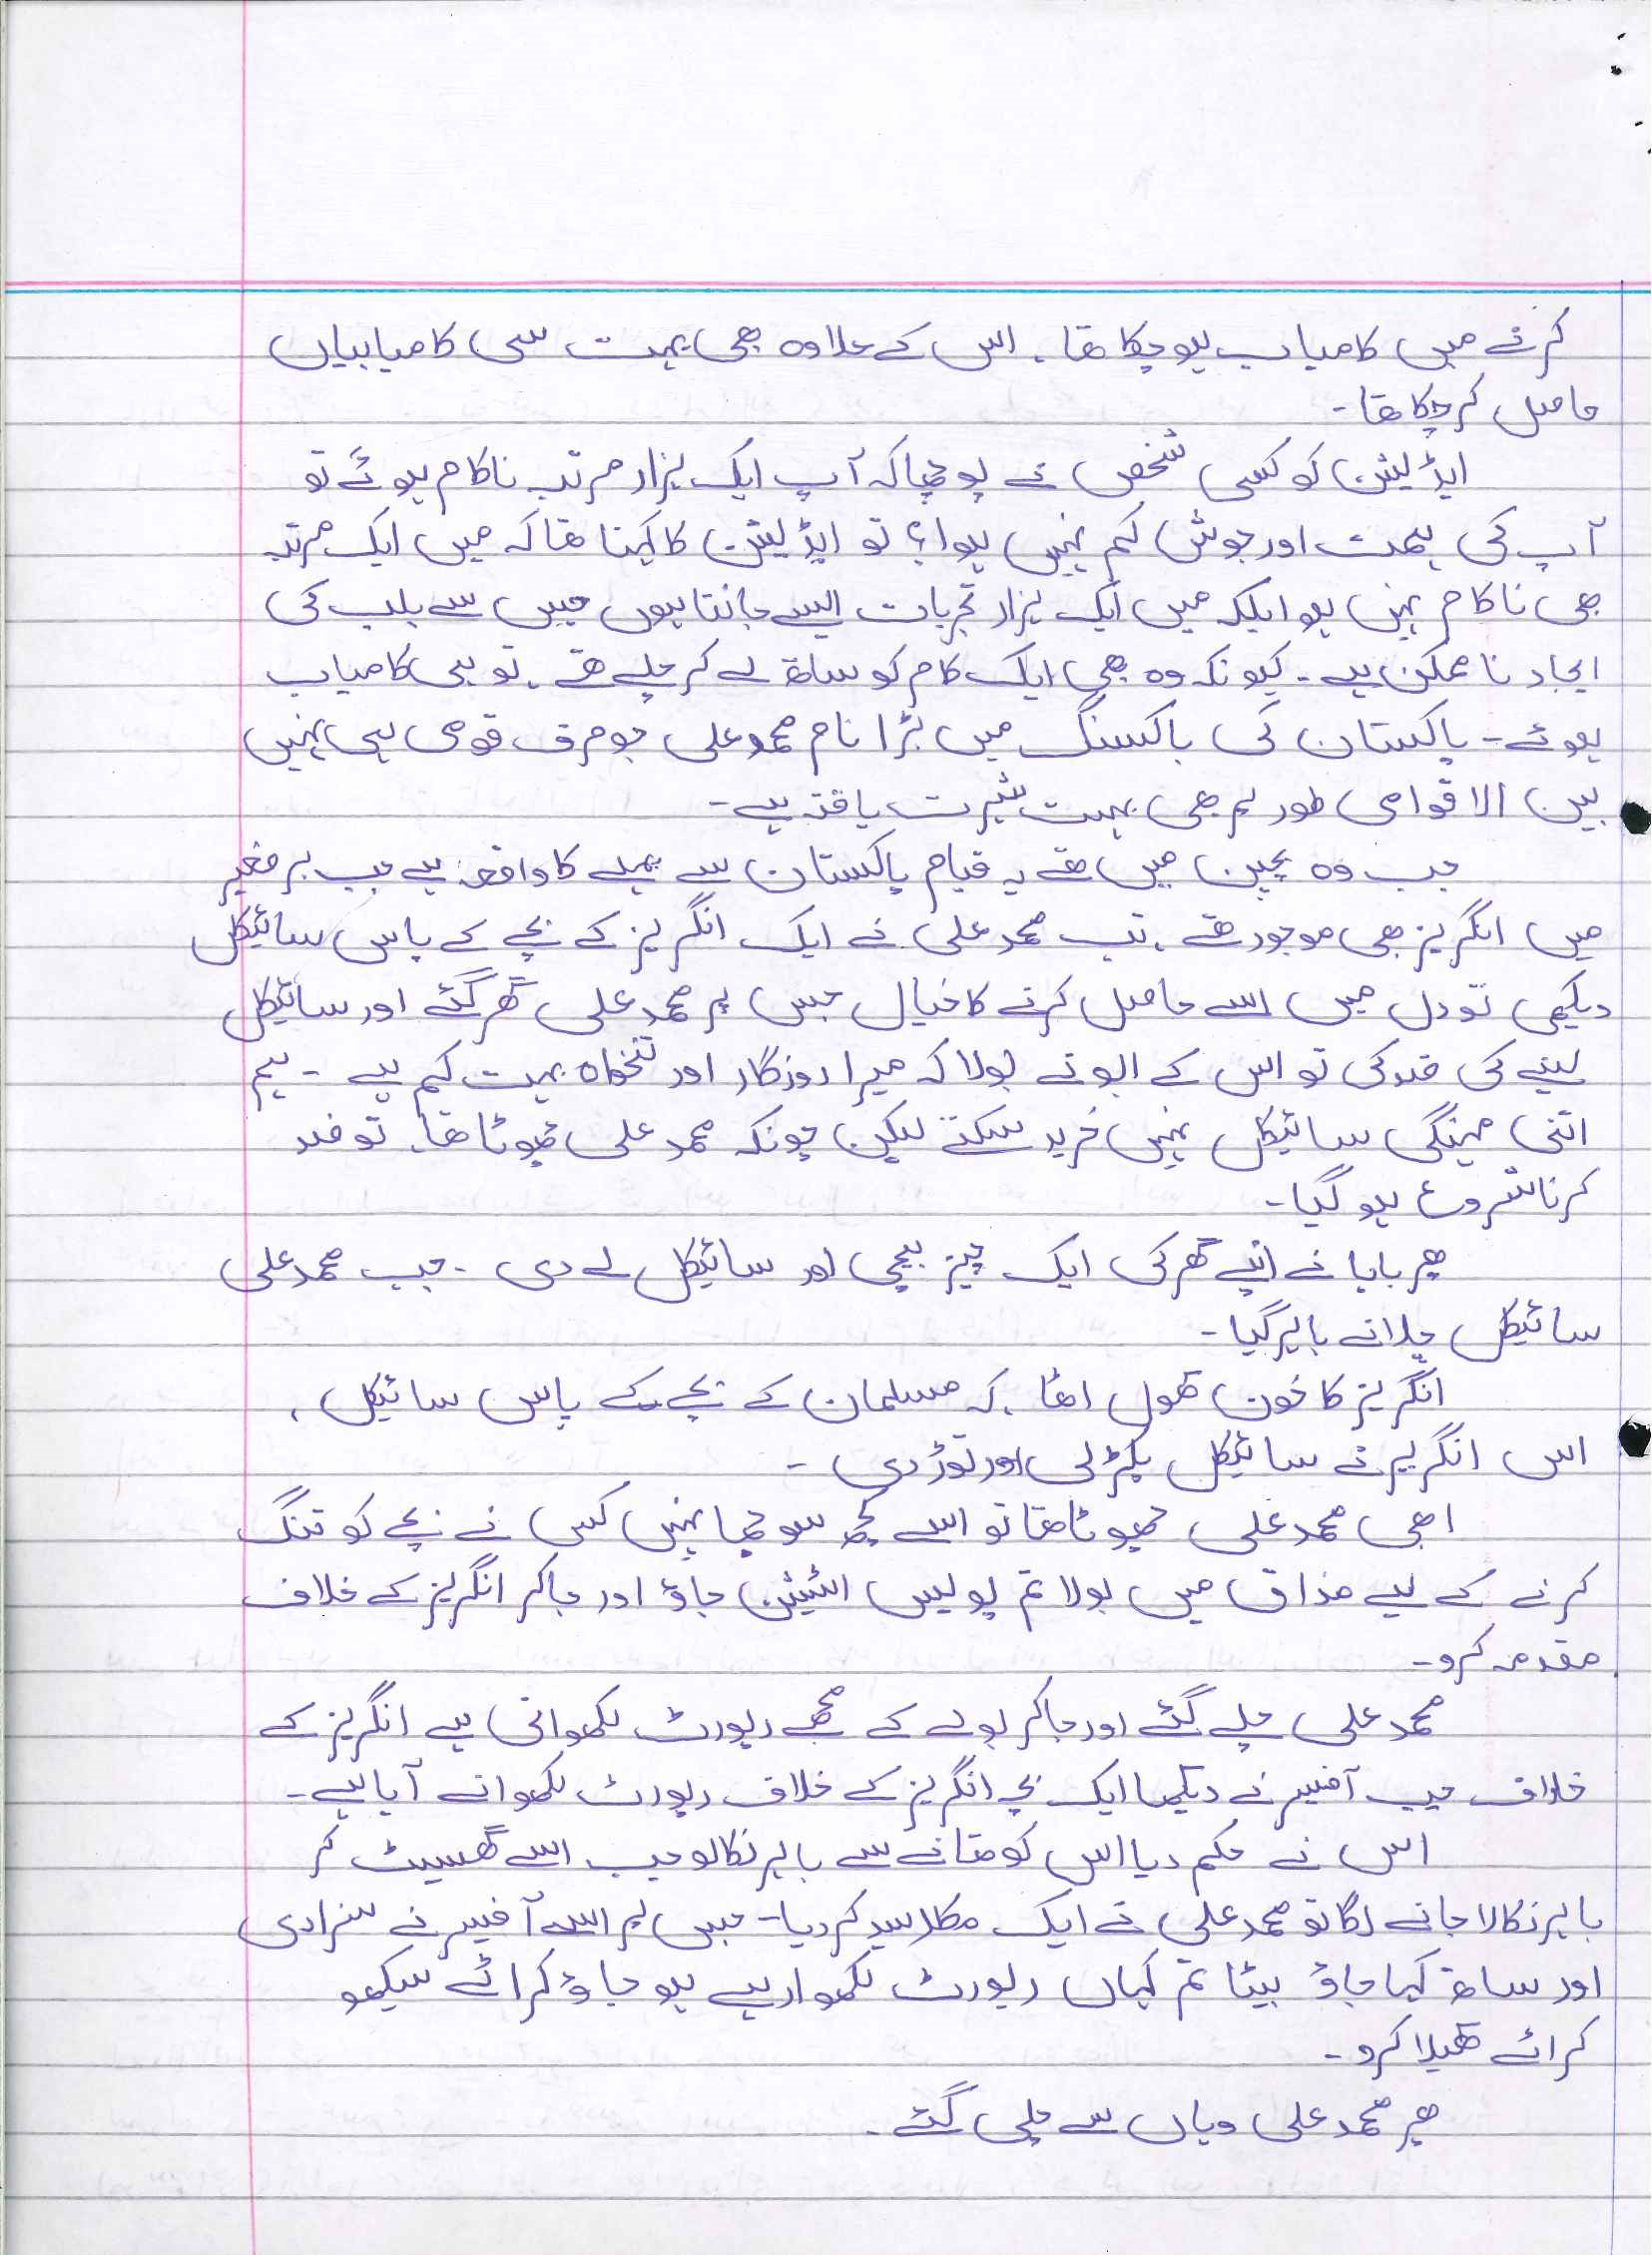 کرنے میں کامیاب ہو چکا تھا۔ اس کے علاوہ بھی بہت سی کامیابیاں
حاصل کر چکا تھا۔
ایڈیسن کو کسی شخص نے پوچھا کہ آپ ایک ہزار مرتبہ ناکام ہوئے تو
آپ کی ہمت اور جوش کم نہیں ہوا؟ تو ایڈیسن کا کہنا تھا کہ میں ایک مرتبہ
بھی ناکام نہیں ہوا بلکہ میں ایک ہزار تجربات ایسے جانتا ہوں جس سے بلب کی
ایجاد ناممکن ہے۔ کیونکہ وہ بھی ایک کام کو ساتھ لے کر چلے تھے۔ تو ہی کامیاب
ہوئے۔ پاکستان کی باکسنگ میں بڑا نام محمد علی جو صرف قومی ہی نہیں
بین الاقوامی طور پر بھی بہت شہرت یافتہ ہے۔
جب وہ بچپن میں تھے یہ قیام پاکستان سے پہلے کا واقعہ ہے جب برصغیر
میں انگریز بھی موجود تھے۔ تب محمد علی نے ایک انگریز کے بچے کے پاس سائیکل
دیکھی تو دل میں اسے حاصل کرنے کا خیال جس پر محمد علی گھر گئے اور سائیکل
لینے کی ضد کی تو اس کے ابو نے بولا کہ میرا روزگار اور تنخواہ بہت کم ہے۔ ہم
اتنی مہنگی سائیکل نہیں خرید سکتے لیکن چونکہ محمد علی چھوٹا تھا۔ تو ضد
کرنا شروع ہو گیا۔
پھر بابا نے اپنے گھر کی ایک چیز بیچی اور سائیکل لے دی۔ جب محمد علی
سائیکل چلانے باہر گیا۔
انگریز کا خون کھول اٹھا۔ کہ مسلمان کے بچے کے پاس سائیکل،
اس انگریز نے سائیکل پکڑ لی اور توڑ دی۔
ابھی محمد علی چھوٹا تھا تو اسے کچھ سوجھا نہیں کسی نے بچے کو تنگ
کرنے کے لیے مذاق میں بولا تم پولیس اسٹیشن جاؤ اور جا کر انگریز کے خلاف
مقدمہ کرو۔
محمد علی چلے گئے اور جا کر بولے کے مجھے رپورٹ لکھوانی ہے انگریز کے
خلاف جب آفیسر نے دیکھا ایک بچہ انگریز کے خلاف رپورٹ لکھوانے آیا ہے۔
اس نے حکم دیا اس کو تھانے سے باہر نکالو جب اسے گھسیٹ کر
باہر نکالا جانے لگا تو محمد علی نے ایک مکا رسید کر دیا۔ جس پر اسے آفیسر نے سزا دی
اور ساتھ کہا جاؤ بیٹا تم کہاں رپورٹ لکھوا رہے ہو جاؤ کراٹے سیکھو
کراٹے کھیلا کرو۔
پھر محمد علی وہاں سے چلی گئے۔